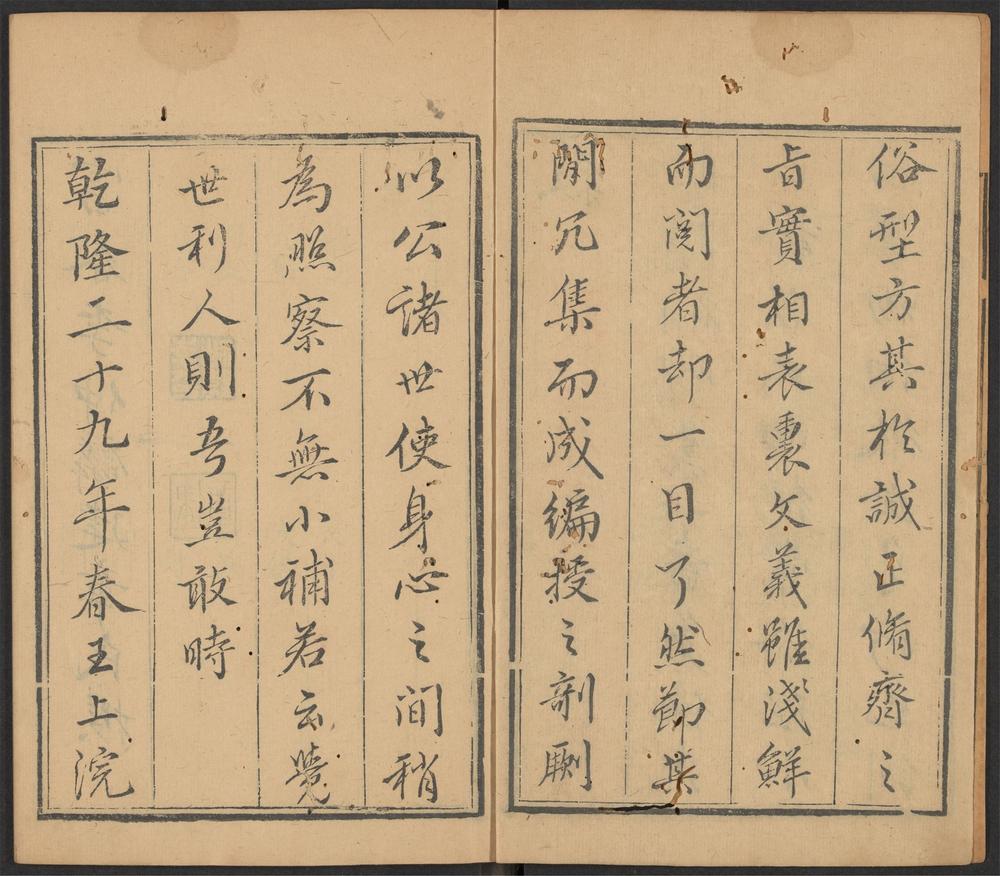 俗型方其於誠正脩齊之
旨實相表裏文義雖淺鮮
而閱者却一目了然節其
閒冗集而成編授之剞劂
以公諸世使身心之間稍
為照察不無小補若云覺
世利人則吾豈敢時
乾隆二十九年春王上浣